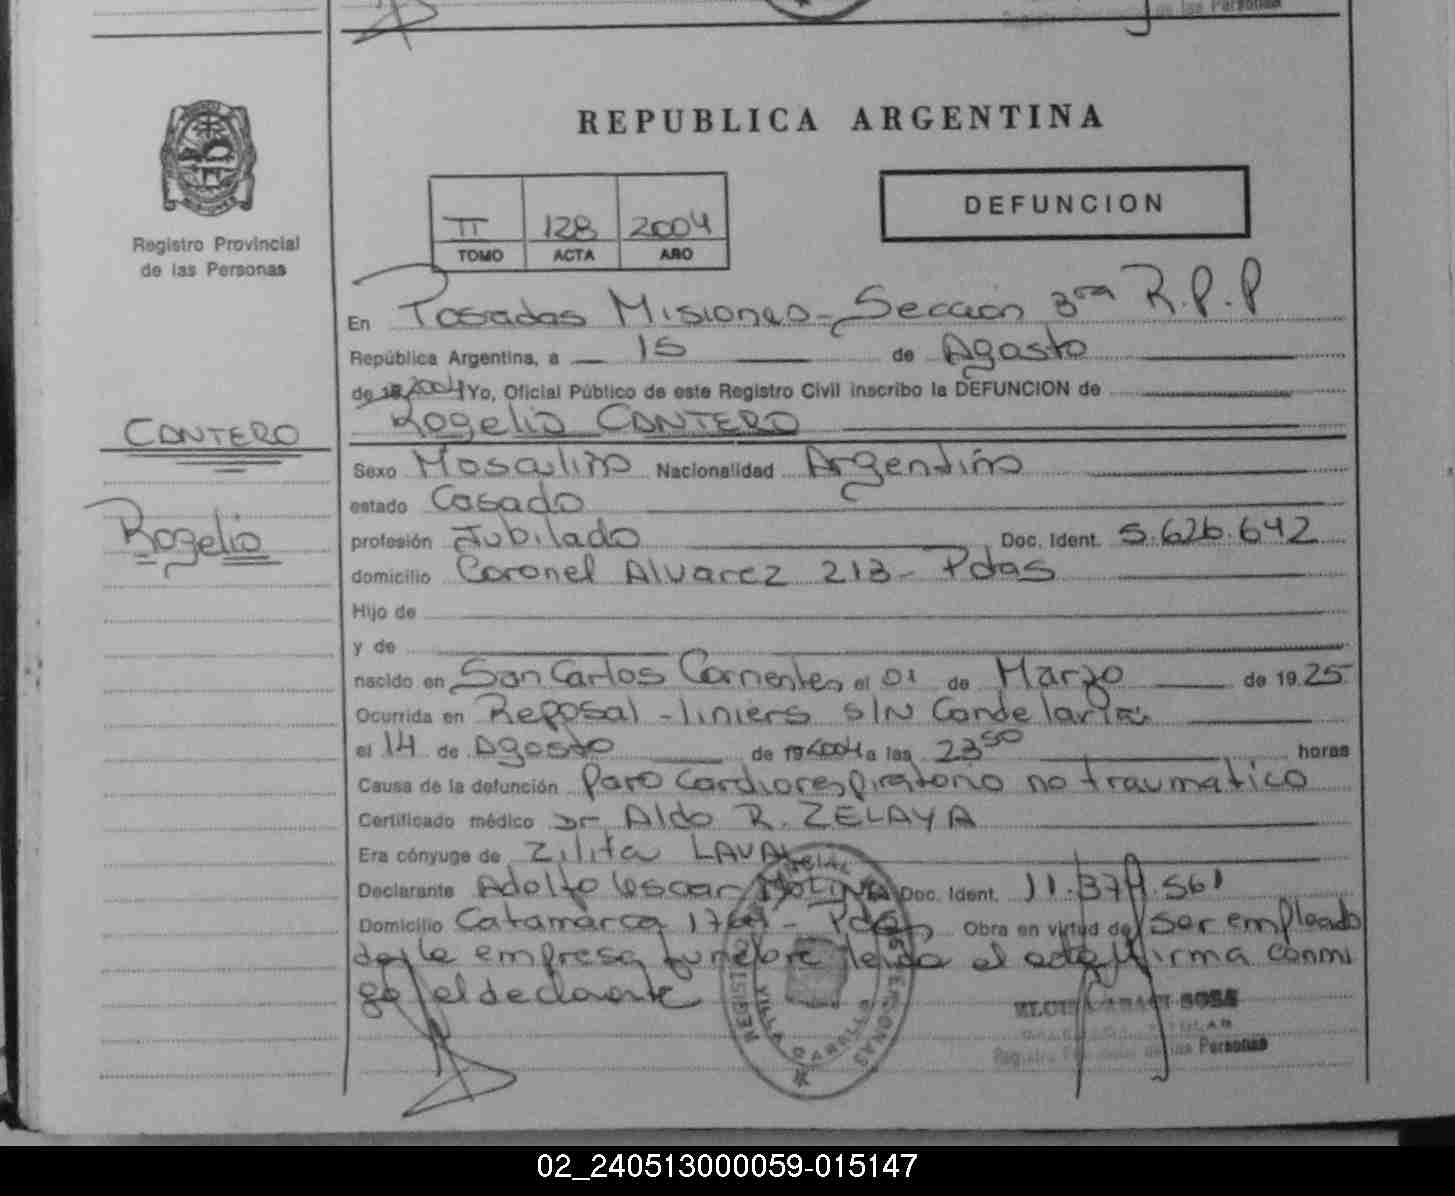 de las Personas
Registro Provincial
de las Personas
REPUBLICA ARGENTINA
II 128 2004
TOMO ACTA AÑO
DEFUNCION
En Posadas Misiones - Sección 3ra R.P.P
República Argentina, a 15 de Agosto
de 2004 Yo, Oficial Público de este Registro Civil inscribo la DEFUNCION de
Rogelio CANTERO
CANTERO
Rogelio
Sexo Masculino Nacionalidad Argentino
estado Casado
profesión Jubilado Doc. Ident. 5.626.642
domicilio Coronel Alvarez 213 - Pdas
Hijo de
y de
nacido en San Carlos Corrientes el 01 de Marzo de 1925
Ocurrida en Reposal - liniers S/N Candelaria
el 14 de Agosto de 2004 a las 23 50 horas
Causa de la defunción Paro Cardiorespiratorio no traumatico
Certificado médico Dr Aldo R. ZELAYA
Era cónyuge de Zilita LAVAL
Declarante Adolfo Oscar MOLINA Doc. Ident. 11.374.561
Domicilio Catamarca - Pdas Obra en virtud de ser empleado
de la empresa funebre leida el acta firma conmi
go el declarante
VILLA
Registro de las Personas
02_240513000059-015147